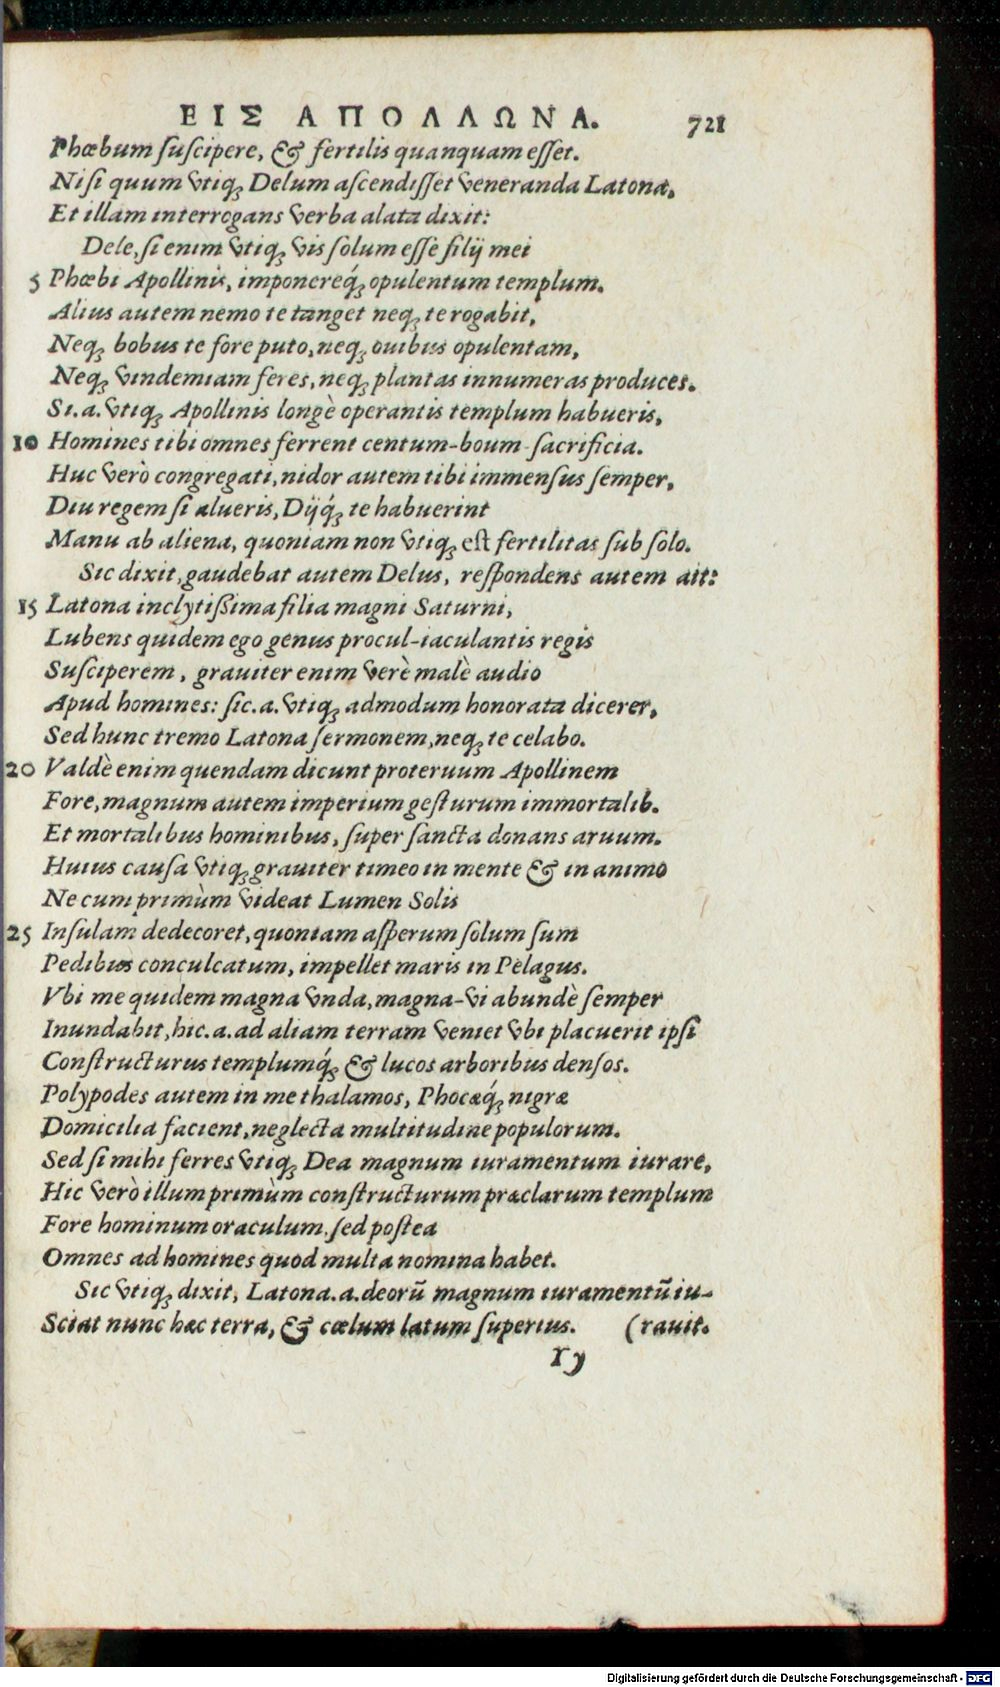 ΕΙΣ ΑΠΟΛΛΩΝΑ. 721
Phœbum ſuſcipere, & fertilis quanquam eſſet.
Niſi quum vtiq; Delum aſcendiſſet veneranda Latona,
Et illam interrogans verba alata dixit:
Dele, ſi enim vtiq; vis ſolum eſſe filij mei
5 Phœbi Apollinis, imponereq́; opulentum templum.
Alius autem nemo te tanget neq; te rogabit,
Neq; bobus te fore puto, neq; ouibus opulentam,
Neq; vindemiam feres, neq; plantas innumeras produces.
Si.a. vtiq; Apollinis longè operantis templum habueris,
10 Homines tibi omnes ferrent centum-boum-ſacrificia.
Huc verò congregati, nidor autem tibi immenſus ſemper,
Diu regem ſi alueris, Dijq́; te habuerint
Manu ab aliena, quoniam non vtiq; eſt fertilitas ſub ſolo.
Sic dixit, gaudebat autem Delus, reſpondens autem ait:
15 Latona inclytißima filia magni Saturni,
Lubens quidem ego genus procul-iaculantis regis
Suſciperem, grauiter enim verè malè audio
Apud homines: ſic.a. vtiq; admodum honorata dicerer,
Sed hunc tremo Latona ſermonem, neq; te celabo.
20 Valdè enim quendam dicunt proteruum Apollinem
Fore, magnum autem imperium geſturum immortalib.
Et mortalibus hominibus, ſuper ſancta donans aruum.
Huius cauſa vtiq; grauiter timeo in mente & in animo
Ne cum primùm videat Lumen Solis
25 Inſulam dedecoret, quoniam aſperum ſolum ſum
Pedibus conculcatum, impellet maris in Pelagus.
Vbi me quidem magna vnda, magna-vi abundè ſemper
Inundabit, hic.a. ad aliam terram veniet vbi placuerit ipſi
Conſtructurus templumq́; & lucos arboribus denſos.
Polypodes autem in me thalamos, Phocæq́; nigræ
Domicilia facient, neglecta multitudine populorum.
Sed ſi mihi ferres vtiq; Dea magnum iuramentum iurare,
Hic verò illum primùm conſtructurum præclarum templum
Fore hominum oraculum, ſed poſtea
Omnes ad homines quod multa nomina habet.
Sic vtiq; dixit, Latona.a. deorũ magnum iuramentũ iu-
Sciat nunc hæc terra, & cœlum latum ſuperius. (rauit.
Yy
Digitalisierung gefördert durch die Deutsche Forschungsgemeinschaft - DFG